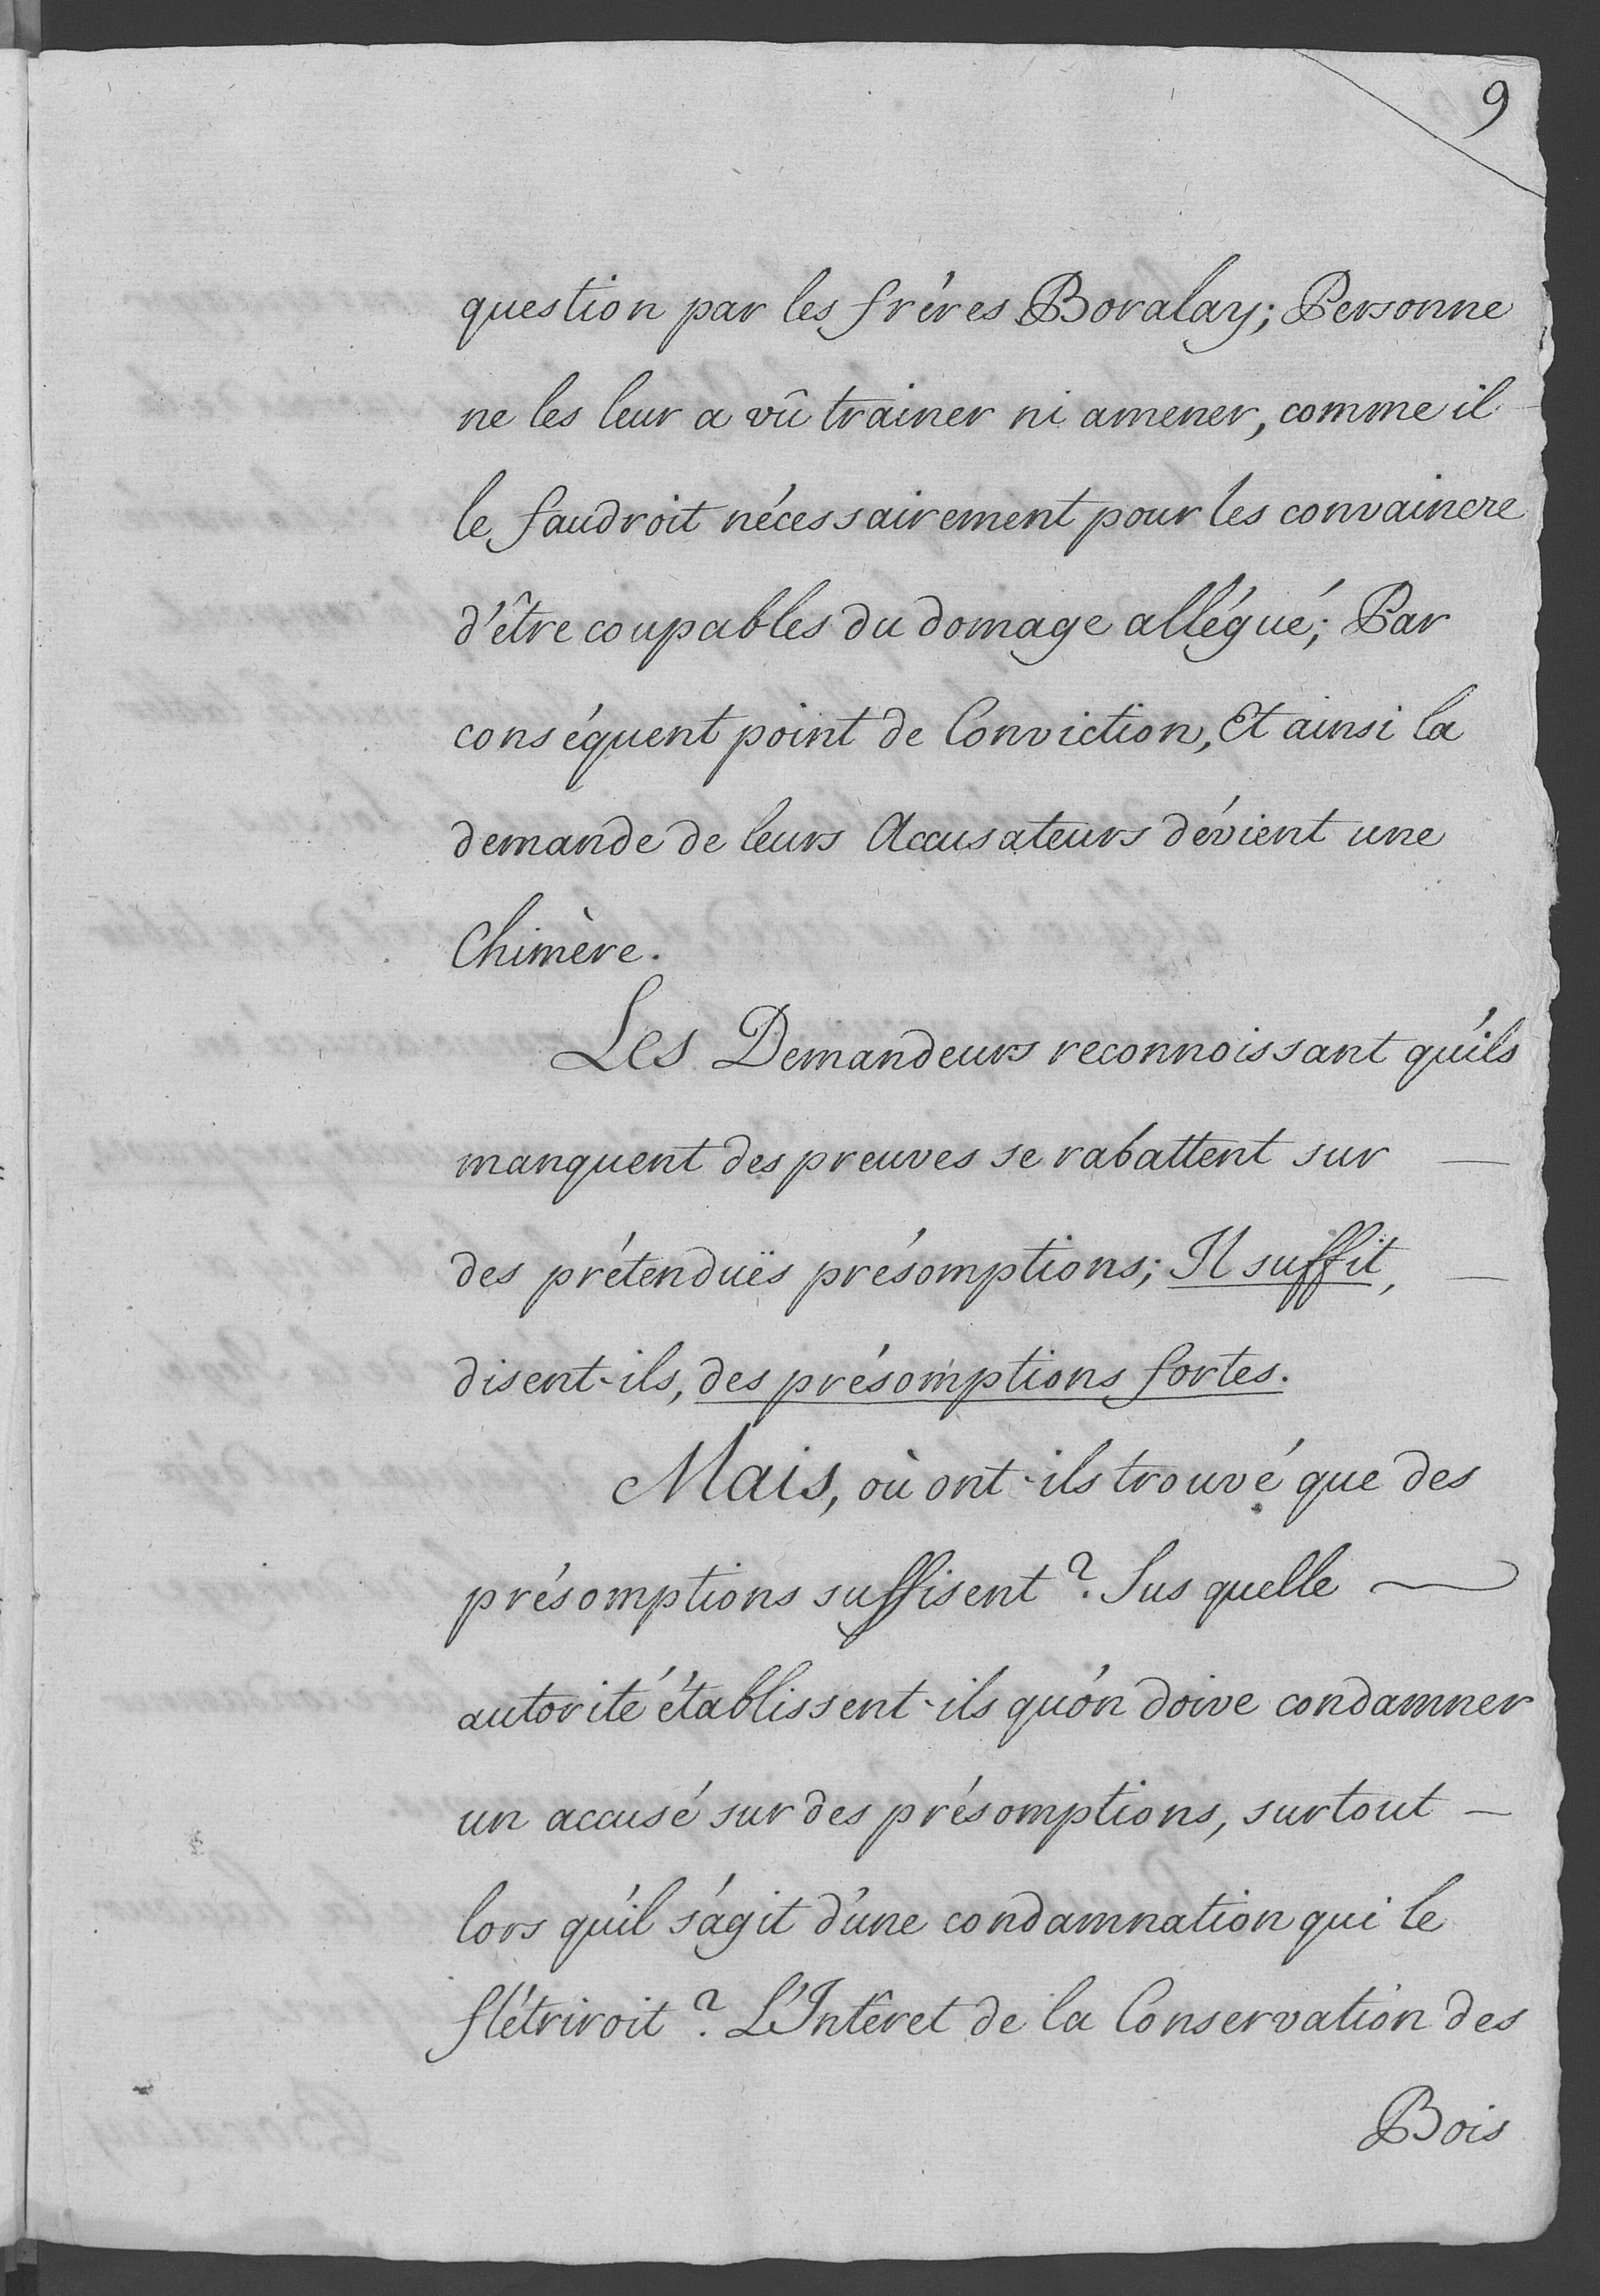 9
question par les fréres Boralay; Personne
ne les leur a vû trainer ni amener, comme il
le faudroit nécessairement pour les convaincre
d'être coupables du domage allégué; Par
conséquent point de Conviction, Et ainsi la
demande de leurs Accusateurs dévient une
Chimère.
Les Demandeurs reconnoissant qu'ils
manquent des preuves se rabattent sur —
des prétenduës présomptions; Il suffit, —
disent-ils, des présomptions fortes.
Mais, où ont-ils trouvé que des
présomptions suffisent? Sus quelle —
autorité établissent-ils qu'on doive condamner
un accusé sur des présomptions, surtout —
lors qu'il s'agit d'une condamnation qui le
flétriroit? L'Intêret de la Conservation des
Bois